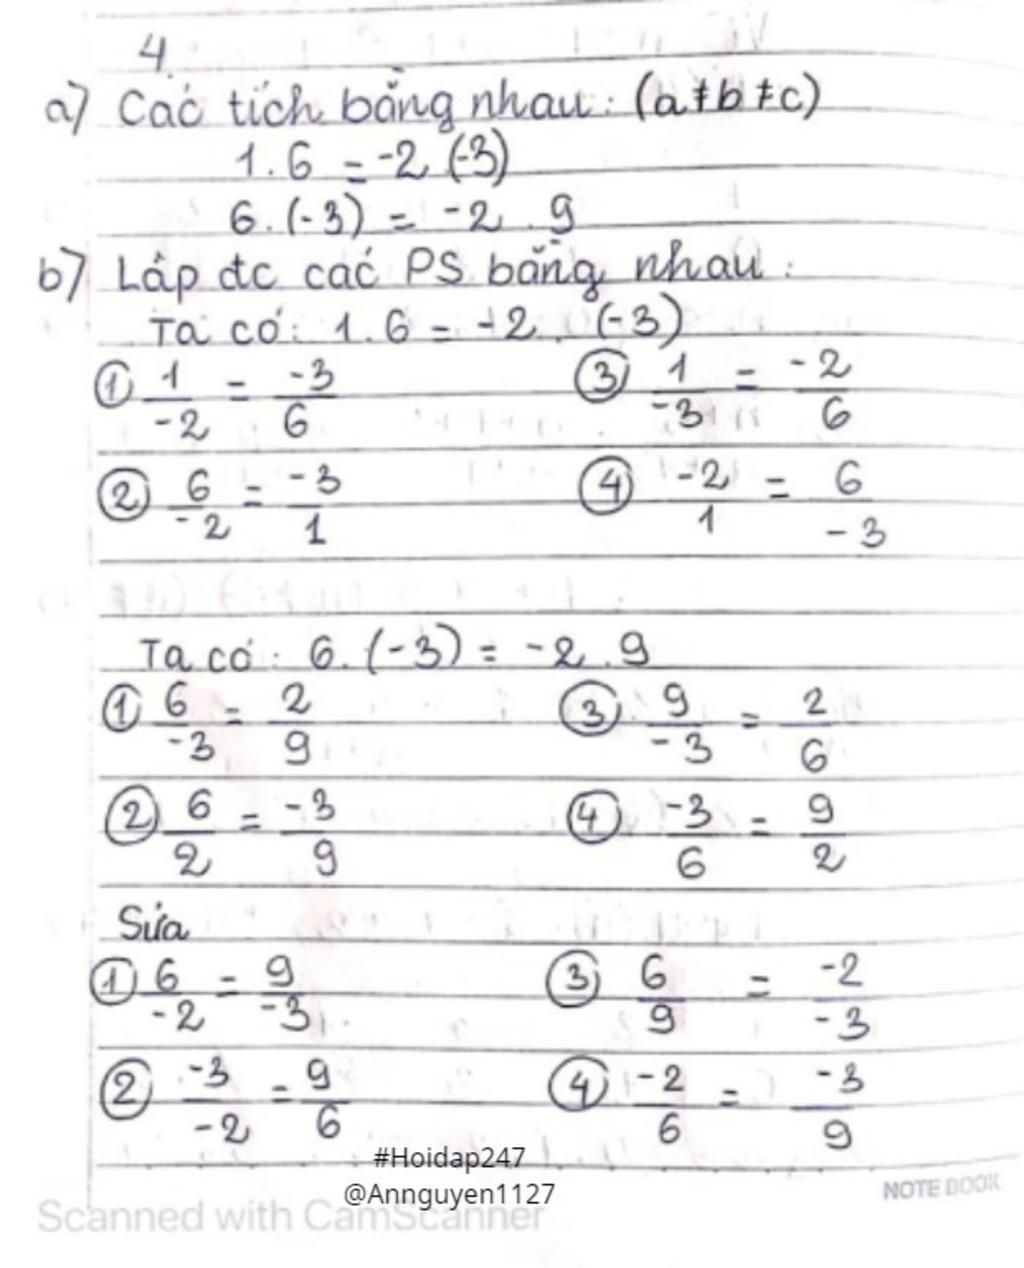 4
a) Các tích bằng nhau: (a≠b≠c)
1.6 = -2 (-3)
6.(-3) = -2 . 9
b) Lập đc các PS bằng nhau:
Ta có: 1.6 = -2 . (-3)
① 1/-2 = -3/6 ③ 1/-3 = -2/6
② 6/-2 = -3/1 ④ -2/1 = 6/-3
Ta có: 6.(-3) = -2.9
① 6/-3 = 2/9 ③ 9/-3 = 2/6
② 6/2 = -3/9 ④ -3/6 = 9/2
Sửa
① 6/-2 = 9/-3 ③ 6/9 = -2/-3
② -3/-2 = 9/6 ④ -2/6 = -3/9
#Hoidap247
@Annguyen1127
NOTE BOOK
Scanned with CamScanner